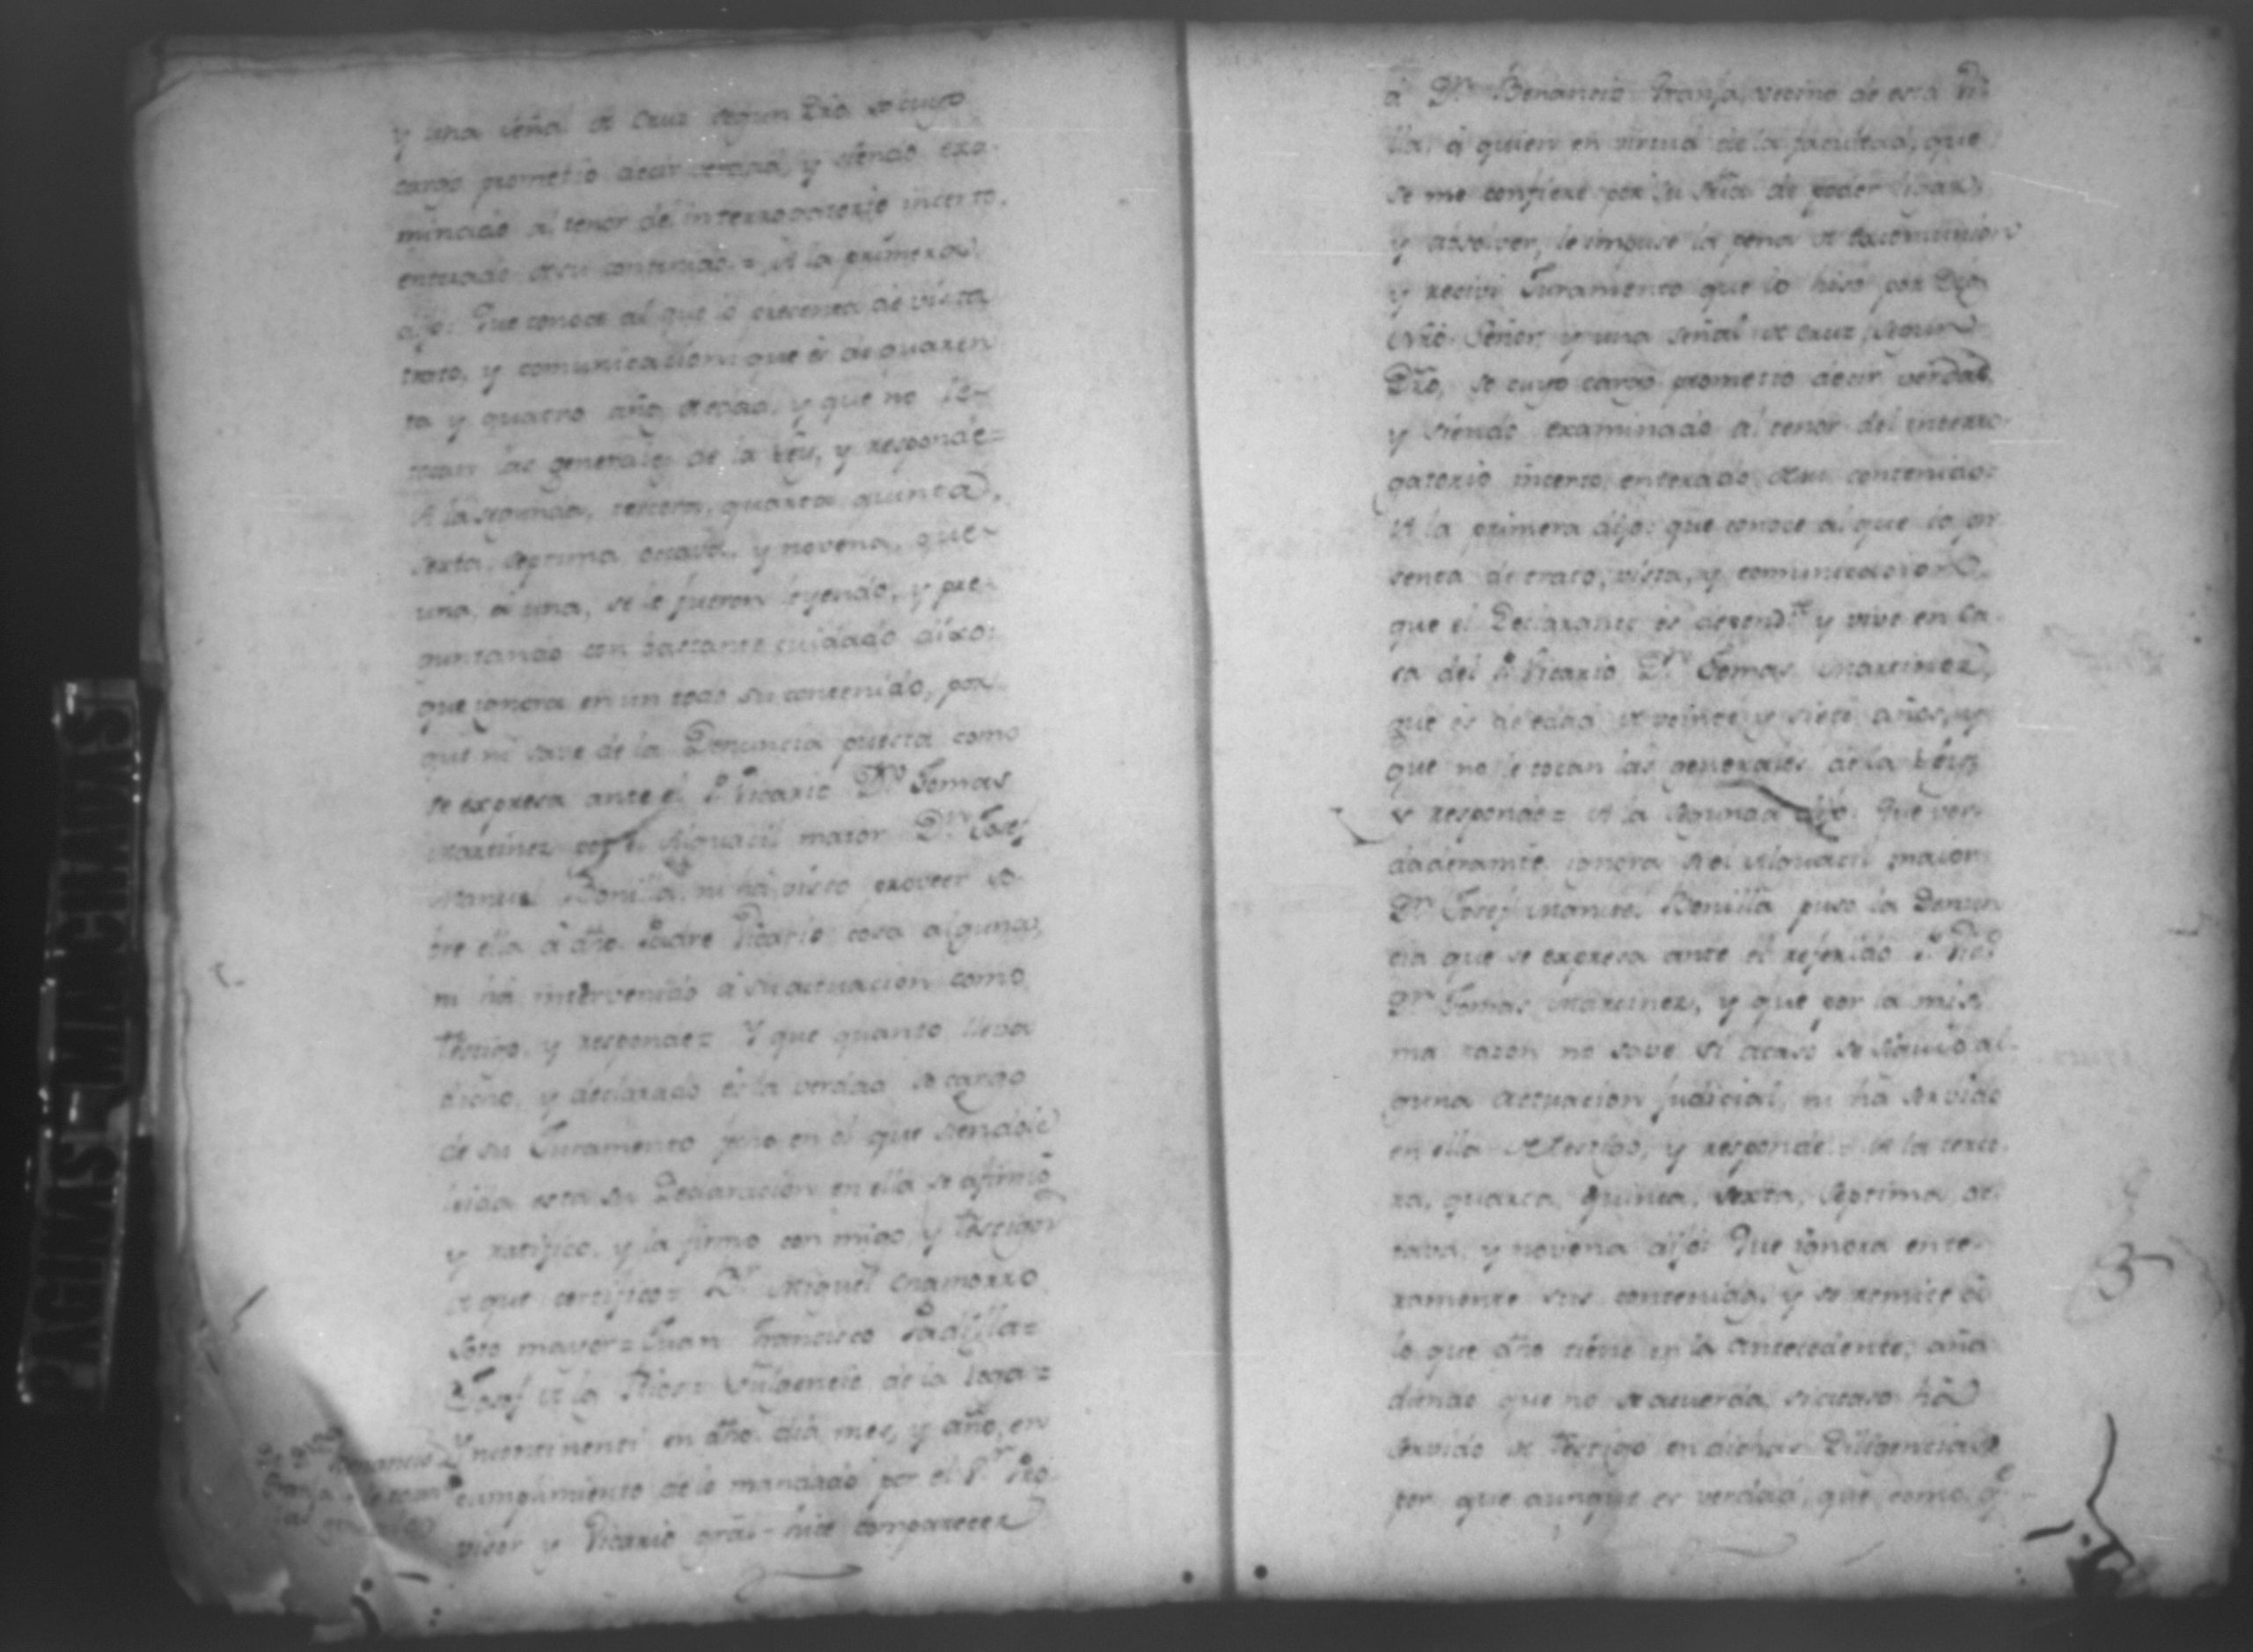 y una señal de Cruz segun Dro so cuyo
cargo prometio decir verdad, y siendo exa-
minado al tenor del interrogatorio incerto,
enterado de su contenido = A la primera
dijo: Que conoce al que lo precenta de vista
trato, y comunicacion: que es de quaren
ta y quatro años de edad, y que no le-
tocan las generales de la Ley, y responde=
A la segunda, tercera, quarta quinta,
sexta, septima octava, y novena, que-
una, á una, se le fueron leyendo, y pre-
guntando con bastante cuidado dixo:
que ignora en un todo su contenido, por-
que no save de la Denuncia puesta como
se expresa ante el P. Vicario Dn Tomas
Martinez por el Alguacil maior Dn Josef
Manuel Bonilla, ni há visto proveer so-
bre ella á dho. Padre Vicario cosa alguna,
ni há intervenido á su actuacion como
testigo, y responde= Y que quanto lleva
dicho, y declarado es la verdad so cargo
de su Juramento fho en el que siendole
leida esta su Declaracion en ella se afirmó
y ratifico, y la firmo con migo y testigos
de que certifico= Dn Miguel Chamorro
Soto mayor= Juan Francisco Padilla=
Josef de la Rosa= Fulgencio de la Vega=
Yncontinenti en dho. dia mes, y año, en
cumplimiento de lo mandado por el Sr. Pro-
visor y Vicario gral- hice comparecer
Benancio
Granja
á Dn Benancio Granja, vecino de esta Vi
lla, á quien en virtud de la facultad, que
se me confiere por su Sria de poder ligar
y absolver, le impuse la pena de Excomunion
y recivi Juramento que lo hiso por Dios
Ntro Señor, y una señal de Cruz, segun
Dro, so cuyo cargo prometio decir verdad,
y siendo examinado al tenor del interro-
gatorio incerto, enterado de su contenido=
A la primera dijo: que conoce al que lo pre
senta de trato, vista, y comunicacion,
que el Declarante es dependte y vive en ca
sa del P. Vicario Dn Tomas Martinez,
que es de edad de veinte y siete años, y
que no le tocan las generales de la Ley,
y responde= A la segunda dijo: Que ver-
daderamte. ignora si el Alguacil maior
Dn Josef Manuel Bonilla puso la Denun
cia que se expresa ante el referido P. Vico
Dn Tomas Martinez, y que por la mis-
ma razon no save si acaso se siguio al-
guna actuacion Judicial, ni há servido
en ella de testigo, y responde = A la terce-
ra, quarta, quinta, sexta, septima oc-
tava, y novena dijo: Que ignora ente-
ramente sus contenidos, y se remite á
lo que dho tiene en la antecedente, aña
diendo que no se acuerda, si acaso há
servido de testigo en dichas Diligencias
por que aunque es verdad, que como q